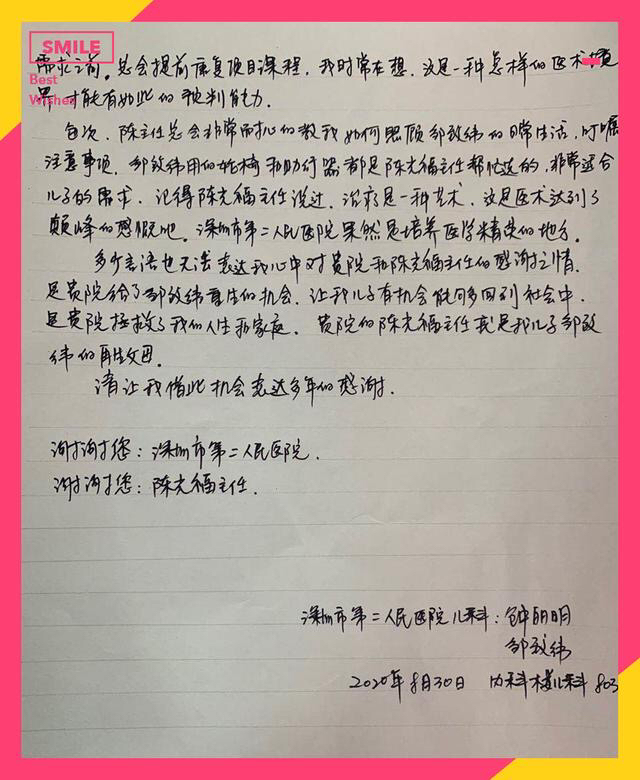 SMILE
Best
Wishes
需求之前。总会提前康复项目课程，我时常在想，这是一种怎样的医术境
界，才能有如此的预判能力。
每次，陈主任总会非常而扣心的教我如何照顾邹致纬的日常生活，叮嘱
注意事项，邹致纬用的轮椅和助行器都是陈光福主任帮忙选的，非常适合
儿子的需求，记得陈光福主任说过，治疗是一种艺术，这是医术达到了
颠峰的感慨吧。深圳市第二人民医院果然是培养医学精英的地方。
多少言语也无法表达我心中对贵院和陈光福主任的感谢之情，
是贵院给了邹致纬再生的机会，让我儿子有机会能够回到社会中，
是贵院拯救了我们人生和家庭，贵院的陈光福主任就是我儿子邹致
纬的再生父母。
请让我借此机会表达多年的感谢。
谢谢您：深圳市第二人民医院。
谢谢您：陈光福主任。
深圳市第二人民医院儿科：钟明明
邹致纬
2020年8月30日 内科楼儿科 803